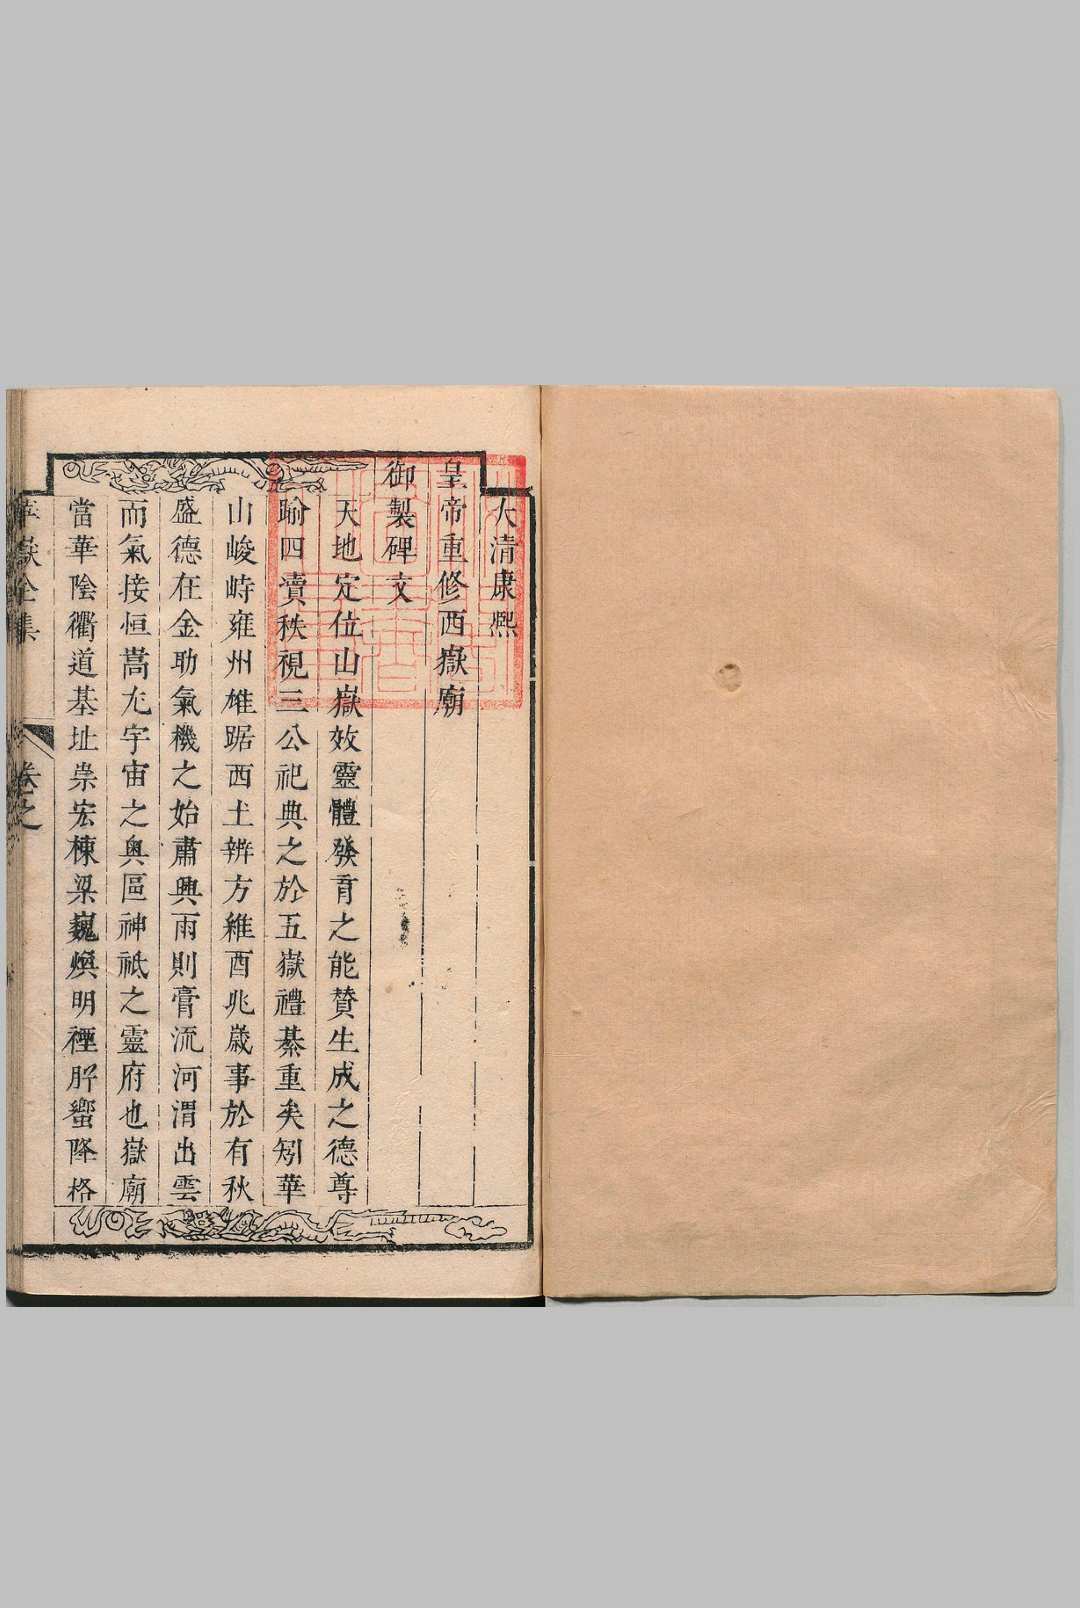 大清康熙
皇帝重修西嶽廟
御製碑文
天地定位山嶽效靈體發育之能贊生成之德尊
踰四瀆秩視三公祀典之於五嶽禮綦重矣矧華
山峻峙雍州雄踞西土辨方維酉兆歲事於有秋
盛德在金助氣機之始肅興雨則膏流河渭出雲
而氣接恒嵩尢宇宙之奥區神祗之靈府也嶽廟
當華陰衢道基址崇宏棟梁巍煥明禋肸蠁降格
華嶽全集
卷之